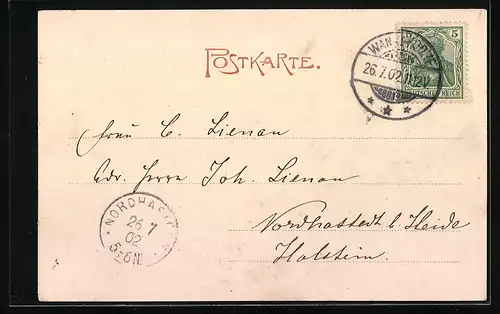 POSTKARTE.
5
DEUTSCHES REICH
26.7.02
Frau C. Lienau
Adr. Herrn Joh. Lienau
Nordhastedt b/ Heide
Holstein.
26 7
02
5-6N